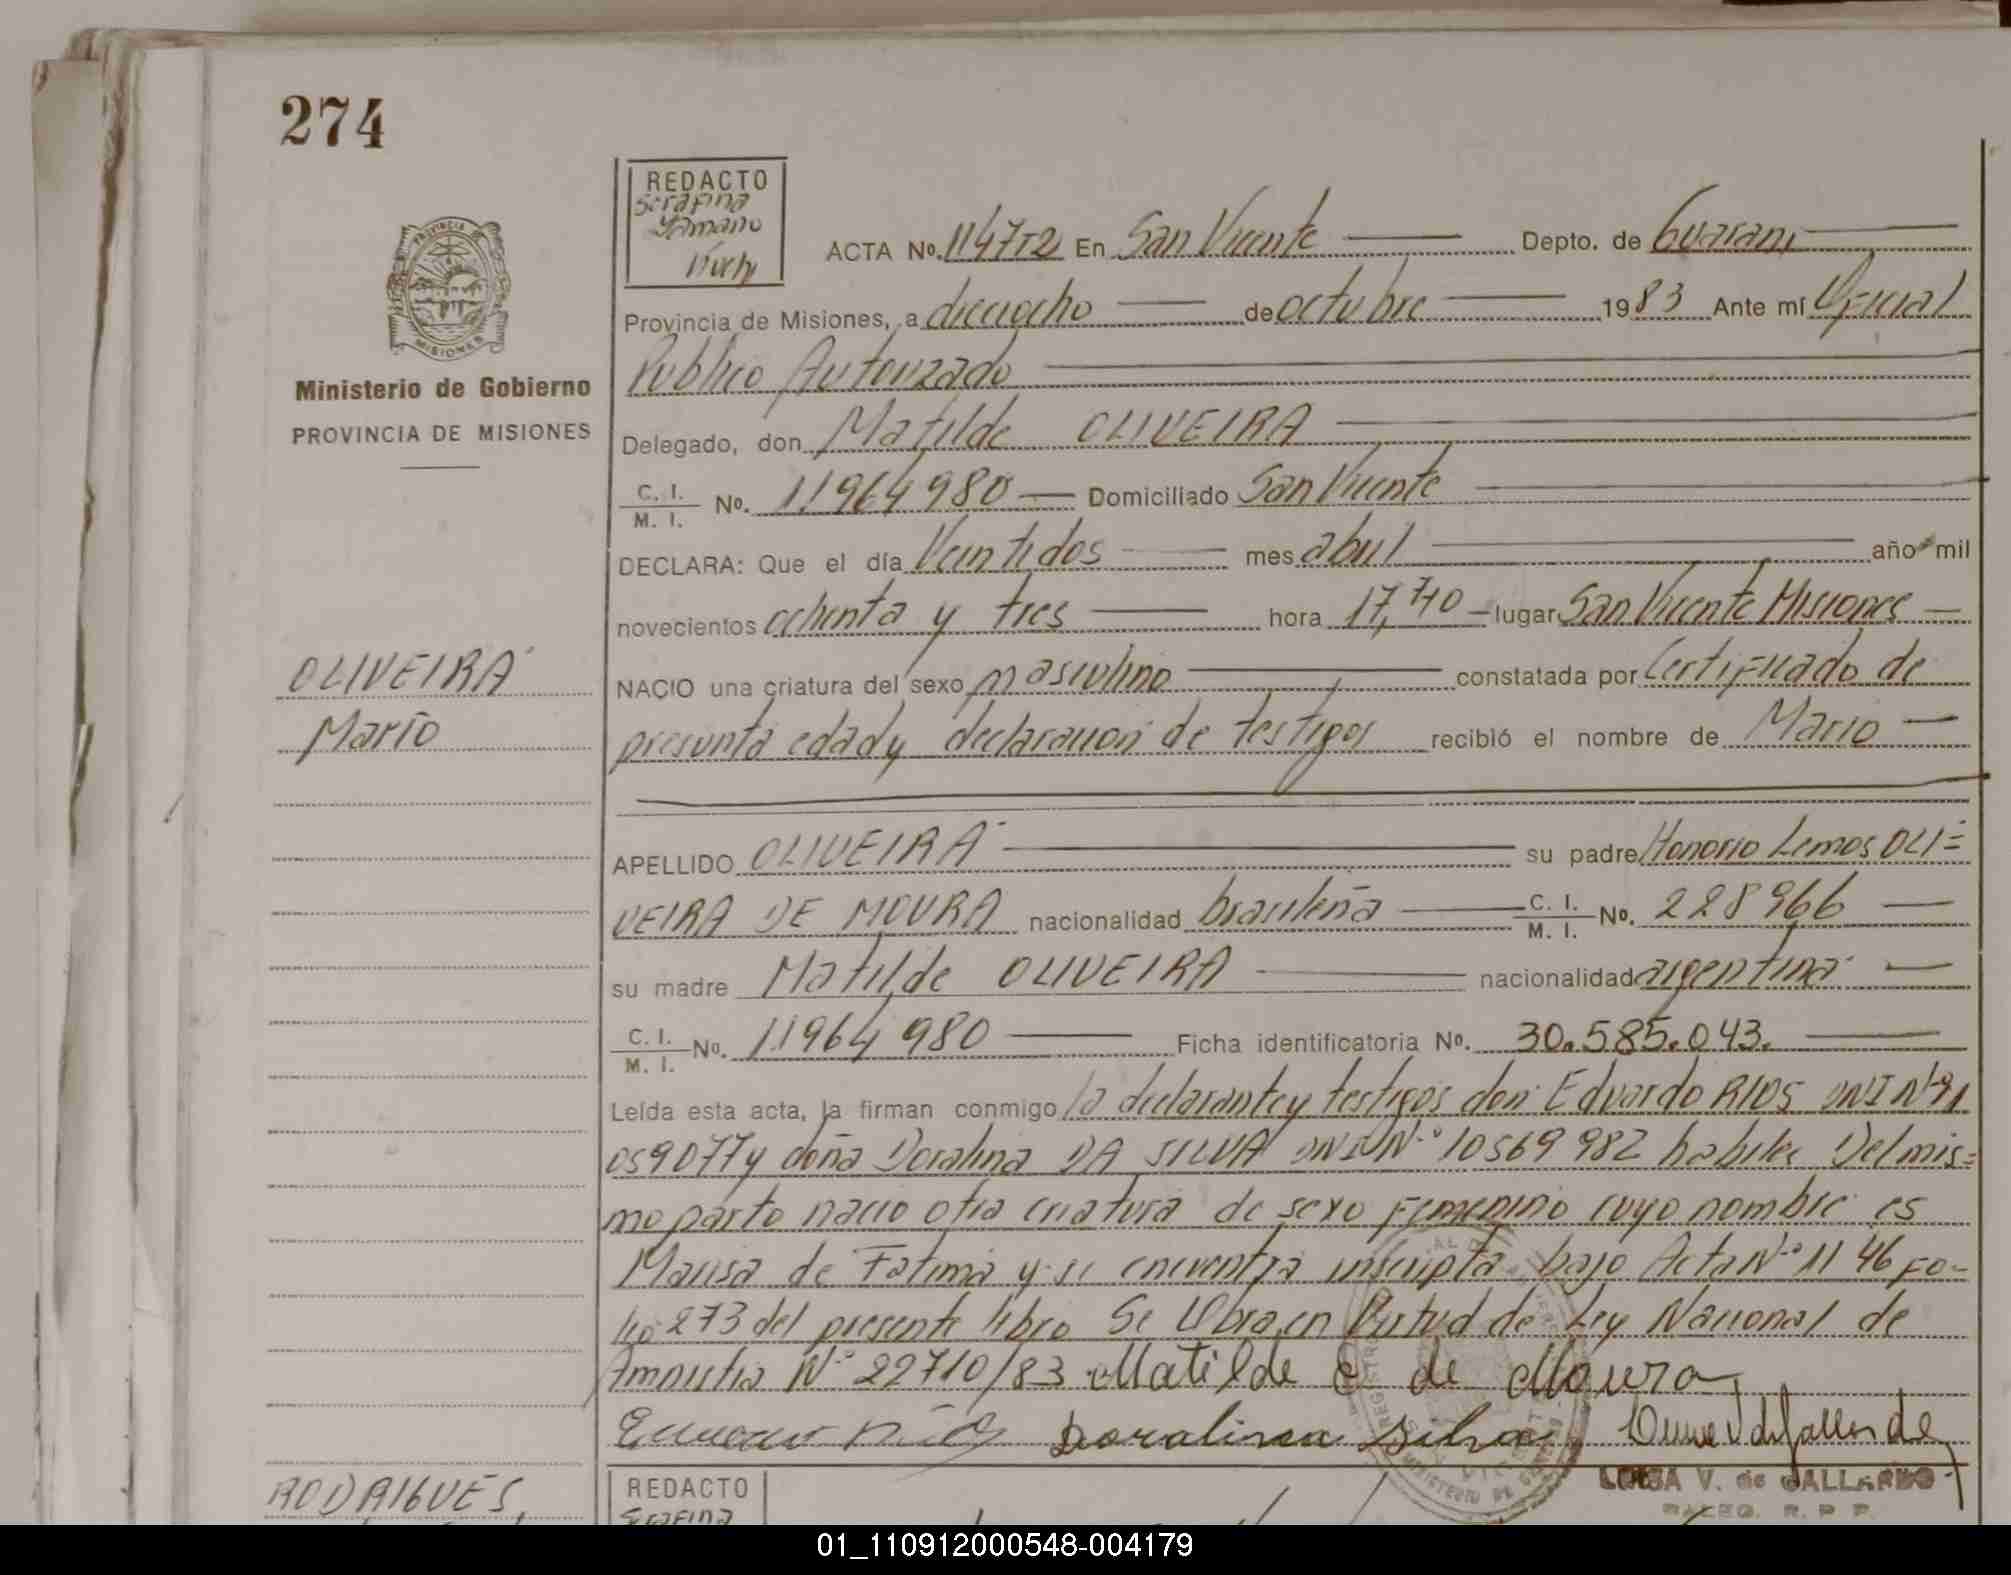 274
REDACTO
Serafina
ACTA No. 1147T2 En San Vicente Depto. de Guarani
Provincia de Misiones, a dieciocho de octubre 1983 Ante mí Oficial
Publico Autorizado
Ministerio de Gobierno
PROVINCIA DE MISIONES
Delegado, don Matilde OLIVEIRA
C. I.
M. I. No. 11964980 Domiciliado San Vicente
DECLARA: Que el día Veintidos mes abril año mil
novecientos ochenta y tres hora 17,40 lugar San Vicente Misiones
OLIVEIRA
Mario
NACIO una criatura del sexo masculino constatada por Certificado de
presunta edad y declaracion de testigos recibió el nombre de Mario
APELLIDO OLIVEIRA su padre Honorio Lemos OLI=
VEIRA DE MOURA nacionalidad brasileña C. I. M. I. No. 228966
su madre Matilde OLIVEIRA nacionalidad argentina
C. I. M. I. No. 11964980 Ficha identificatoria No. 30.585.043.
Leída esta acta, la firman conmigo la declarante y testigos don Eduardo RIOS DNI Nº 21
059077 y doña Doralina DA SILVA DNI Nº 10569982 habiles Del mis=
mo parto nacio otra criatura de sexo femenino cuyo nombre es
Marisa de Fatima y se encuentra inscripta bajo Acta Nº 1146 Fo-
lio 273 del presente libro Se Obra en Virtud de Ley Nacional de
Amnistia Nº 22710/83 Matilde O de Moura
Doralina Silva
LUISA V. de GALLARDO
RODRIGUES
REDACTO
Serafina
01_110912000548-004179